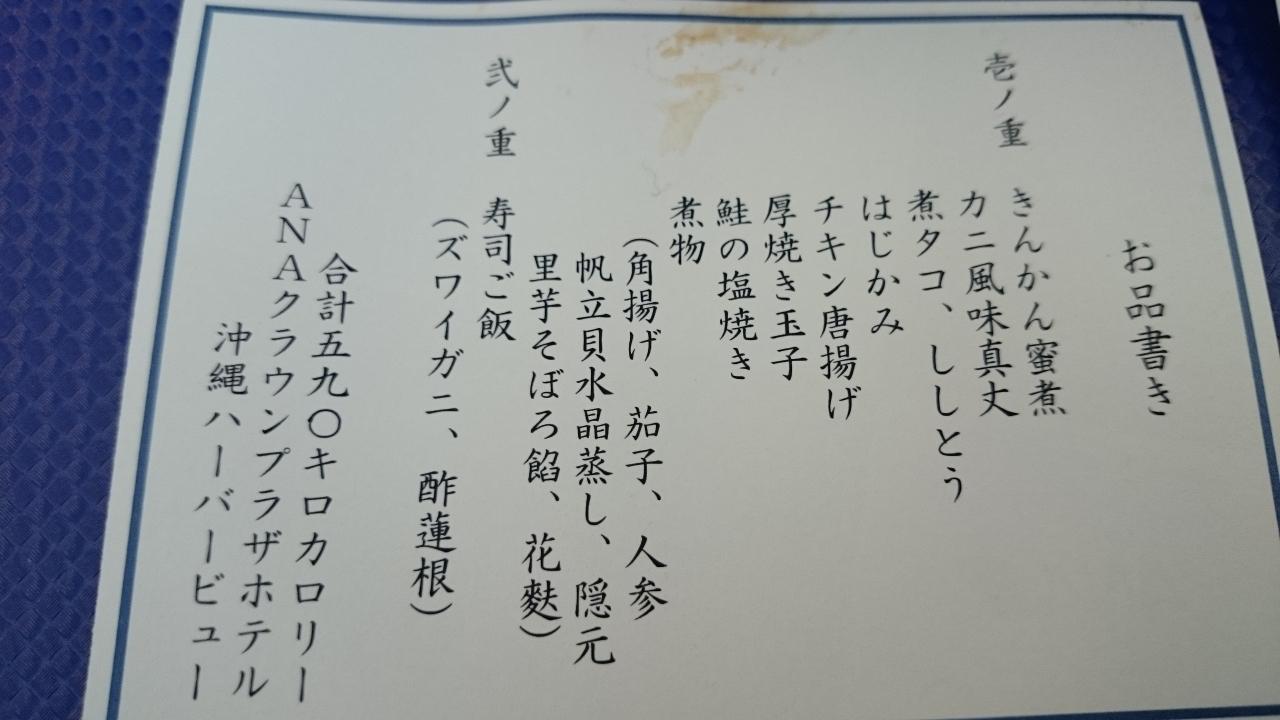 お品書き
壱ノ重 きんかん蜜煮
カニ風味真丈
煮タコ、ししとう
はじかみ
チキン唐揚げ
厚焼き玉子
鮭の塩焼き
煮物
（角揚げ、茄子、人参
帆立貝水晶蒸し、隠元
里芋そぼろ餡、花麩）
弐ノ重 寿司ご飯
（ズワイガニ、酢蓮根）
合計五九〇キロカロリー
ANAクラウンプラザホテル
沖縄ハーバービュー